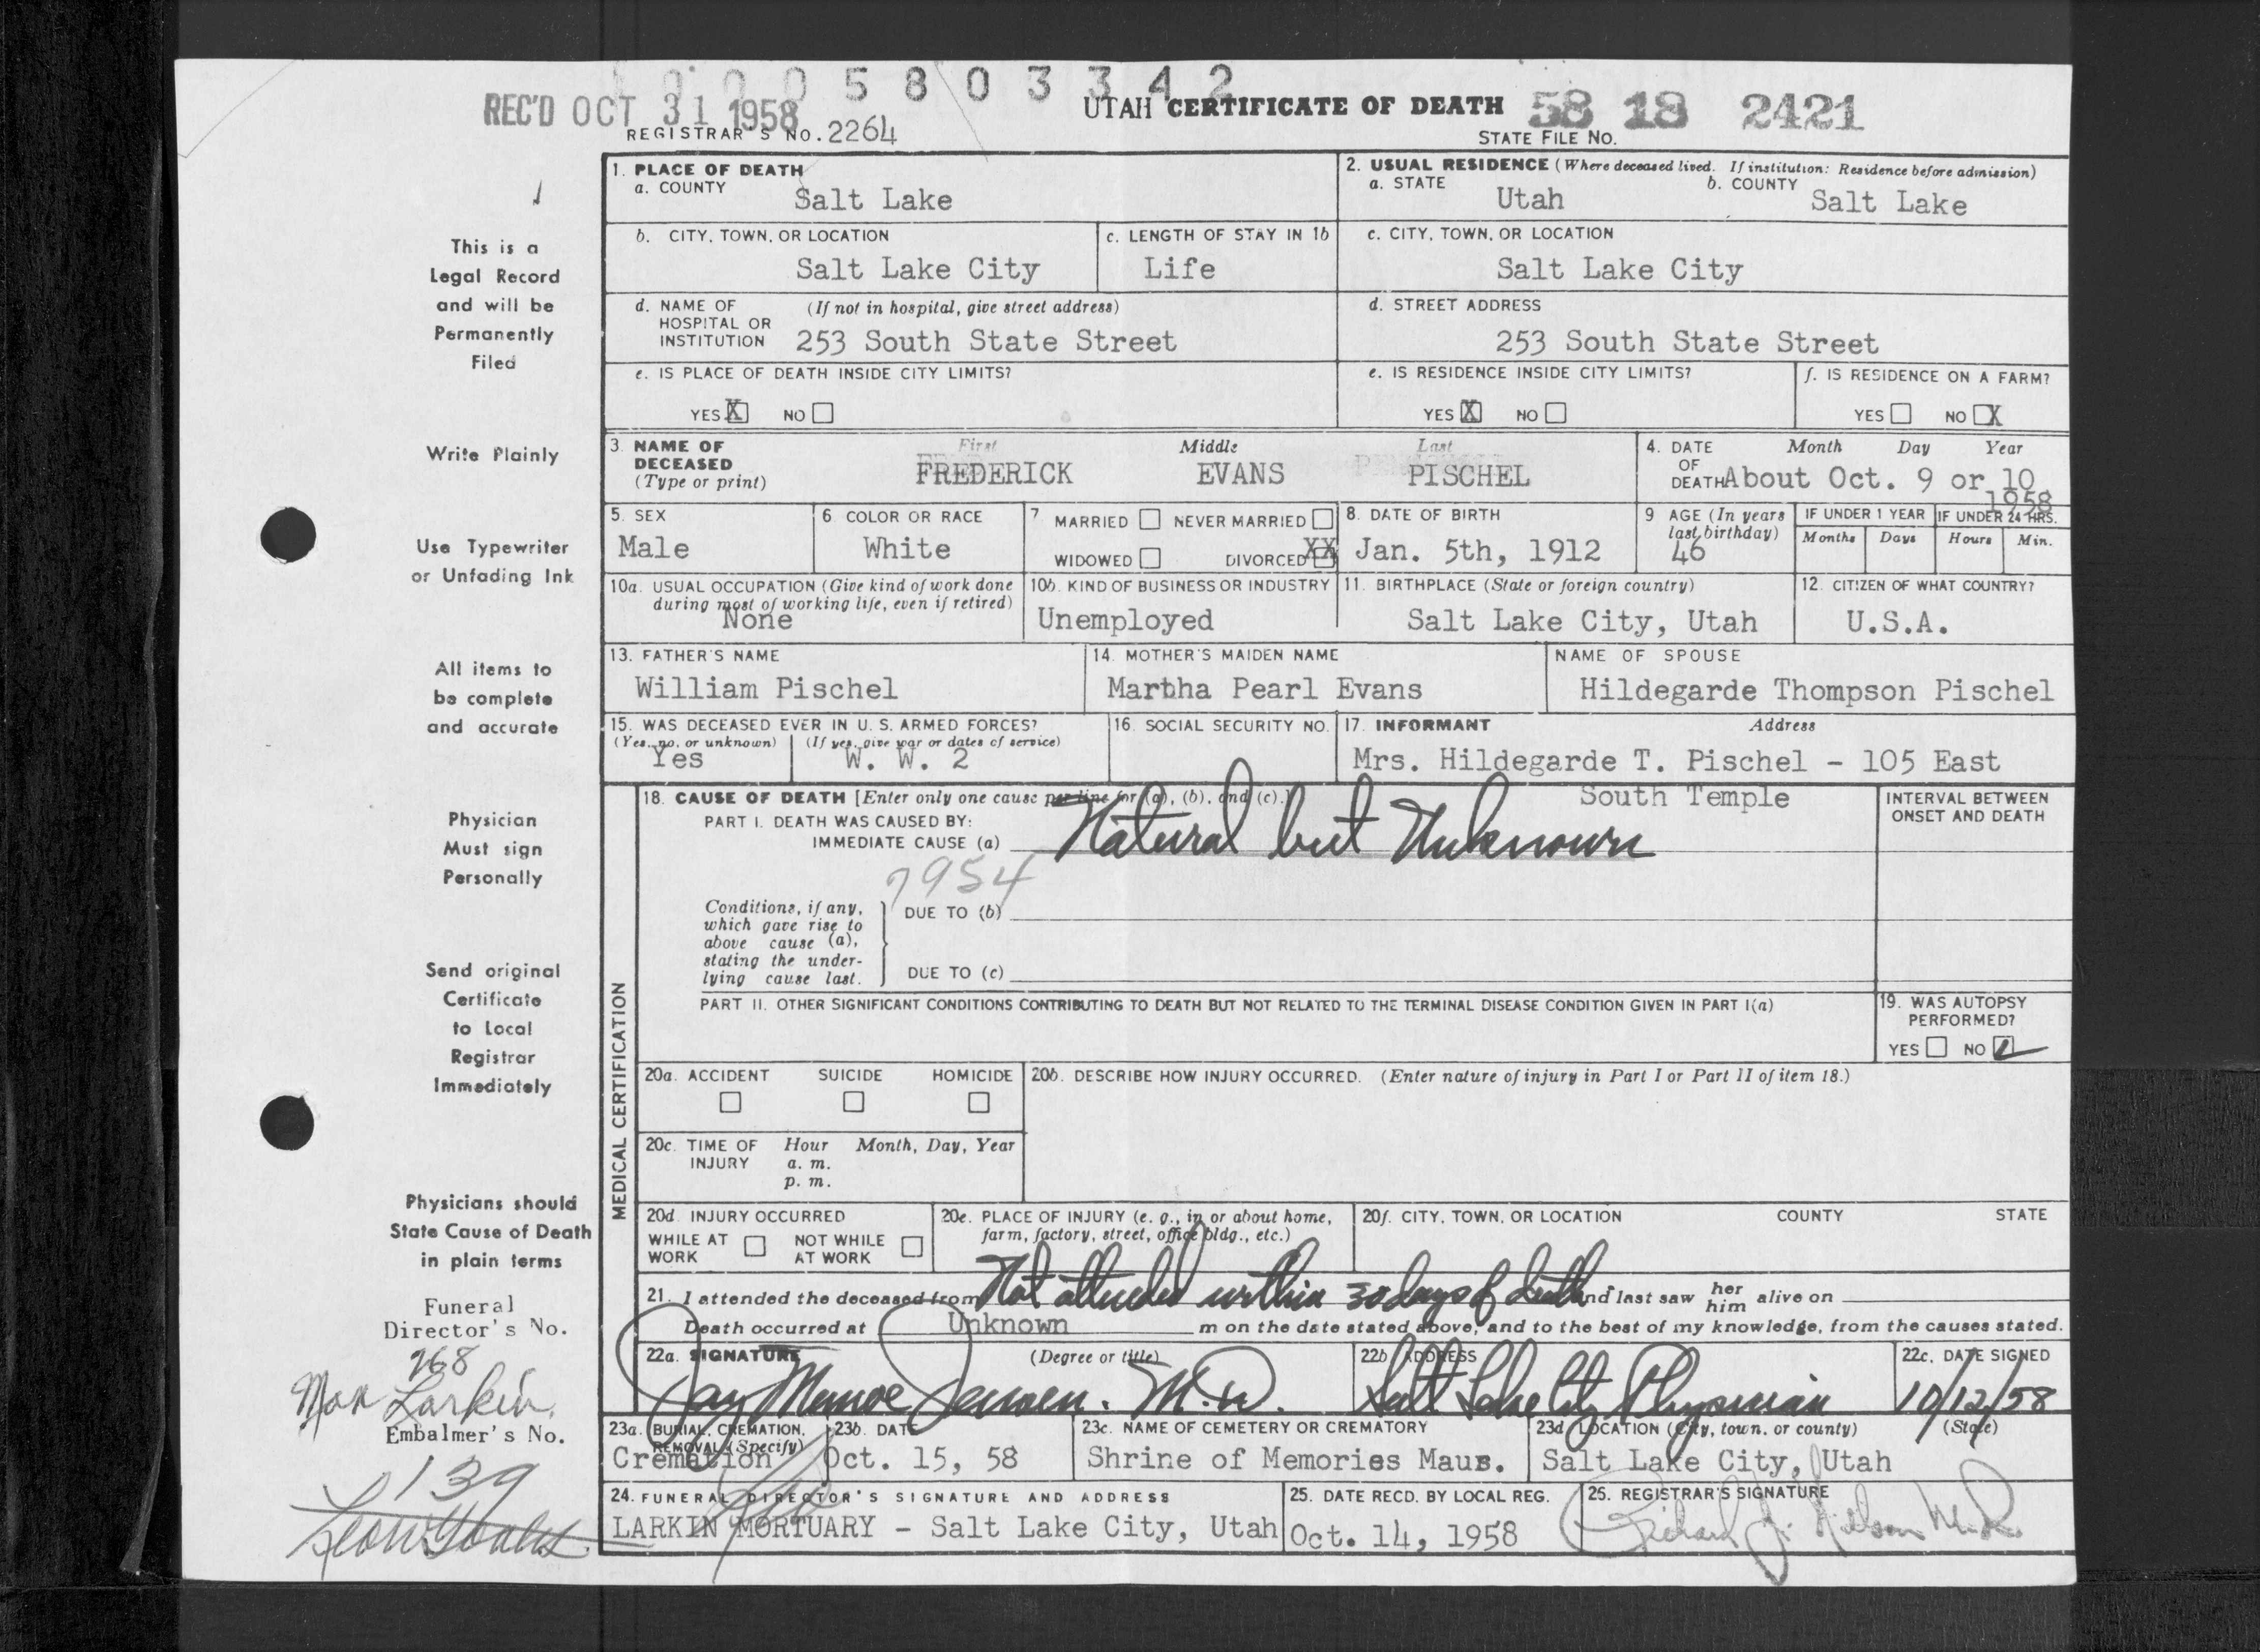 0005803342
REC'D OCT 31 1958
REGISTRAR'S No. 2264
UTAH CERTIFICATE OF DEATH
58 18 2421
STATE FILE NO.
This is a
Legal Record
and will be
Permanently
Filed
Write Plainly
Use Typewriter
or Unfading Ink
All items to
be complete
and accurate
Physician
Must sign
Personally
Send original
Certificate
to Local
Registrar
Immediately
Physicians should
State Cause of Death
in plain terms
Funeral
Director's No.
268
Max Larkin
Embalmer's No.
139
1. PLACE OF DEATH
a. COUNTY
Salt Lake
2. USUAL RESIDENCE (Where deceased lived. If institution: Residence before admission)
a. STATE
Utah
b. COUNTY
Salt Lake
b. CITY, TOWN, OR LOCATION
Salt Lake City
c. LENGTH OF STAY IN 1b
Life
c. CITY, TOWN, OR LOCATION
Salt Lake City
d. NAME OF HOSPITAL OR INSTITUTION
(If not in hospital, give street address)
253 South State Street
d. STREET ADDRESS
253 South State Street
e. IS PLACE OF DEATH INSIDE CITY LIMITS?
YES X NO
e. IS RESIDENCE INSIDE CITY LIMITS?
YES X NO
f. IS RESIDENCE ON A FARM?
YES NO X
3. NAME OF DECEASED (Type or print)
First Middle Last
FREDERICK EVANS PISCHEL
4. DATE OF DEATH
Month Day Year
About Oct. 9 or 10
1958
5. SEX
Male
6 COLOR OR RACE
White
7 MARRIED NEVER MARRIED
WIDOWED DIVORCED XX
8. DATE OF BIRTH
Jan. 5th, 1912
9 AGE (In years last birthday)
46
IF UNDER 1 YEAR
Months Days
IF UNDER 24 HRS.
Hours Min.
10a. USUAL OCCUPATION (Give kind of work done during most of working life, even if retired)
None
10b. KIND OF BUSINESS OR INDUSTRY
Unemployed
11. BIRTHPLACE (State or foreign country)
Salt Lake City, Utah
12. CITIZEN OF WHAT COUNTRY?
U.S.A.
13. FATHER'S NAME
William Pischel
14. MOTHER'S MAIDEN NAME
Martha Pearl Evans
NAME OF SPOUSE
Hildegarde Thompson Pischel
15. WAS DECEASED EVER IN U. S. ARMED FORCES?
(Yes, no, or unknown)
Yes
(If yes, give war or dates of service)
W. W. 2
16. SOCIAL SECURITY NO.
17. INFORMANT Address
Mrs. Hildegarde T. Pischel - 105 East
South Temple
MEDICAL CERTIFICATION
18. CAUSE OF DEATH [Enter only one cause per line for (a), (b), and (c).]
PART I. DEATH WAS CAUSED BY:
IMMEDIATE CAUSE (a)
Natural but Unknown
7954
Conditions, if any, which gave rise to above cause (a), stating the underlying cause last.
DUE TO (b)
DUE TO (c)
INTERVAL BETWEEN ONSET AND DEATH
PART II. OTHER SIGNIFICANT CONDITIONS CONTRIBUTING TO DEATH BUT NOT RELATED TO THE TERMINAL DISEASE CONDITION GIVEN IN PART I(a)
19. WAS AUTOPSY PERFORMED?
YES NO
20a. ACCIDENT SUICIDE HOMICIDE
20b. DESCRIBE HOW INJURY OCCURRED. (Enter nature of injury in Part I or Part II of item 18.)
20c. TIME OF INJURY
Hour Month, Day, Year
a. m.
p. m.
20d. INJURY OCCURRED
WHILE AT WORK NOT WHILE AT WORK
20e. PLACE OF INJURY (e. g., in or about home, farm, factory, street, office bldg., etc.)
20f. CITY, TOWN, OR LOCATION COUNTY STATE
21. I attended the deceased from Not attended within 30 days of death and last saw her him alive on
Death occurred at Unknown m on the date stated above, and to the best of my knowledge, from the causes stated.
22a. SIGNATURE (Degree or title)
Jay Munroe Jensen. M.D.
22b. ADDRESS
Salt Lake City Physician
22c. DATE SIGNED
10/12/58
23a. BURIAL, CREMATION, REMOVAL (Specify)
Cremation
23b. DATE
Oct. 15, 58
23c. NAME OF CEMETERY OR CREMATORY
Shrine of Memories Maus.
23d. LOCATION (City, town, or county) (State)
Salt Lake City, Utah
24. FUNERAL DIRECTOR'S SIGNATURE AND ADDRESS
LARKIN MORTUARY - Salt Lake City, Utah
25. DATE RECD. BY LOCAL REG.
Oct. 14, 1958
25. REGISTRAR'S SIGNATURE
Richard J. Nelson M.D.